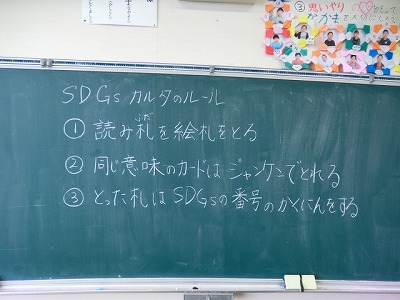 SDGsカルタのルール
① 読み札を絵札をとる
ふだ
② 同じ意味のカードはジャンケンでとれる
③ とった札はSDGsの番号のかくにんをする
③ 思いやりの